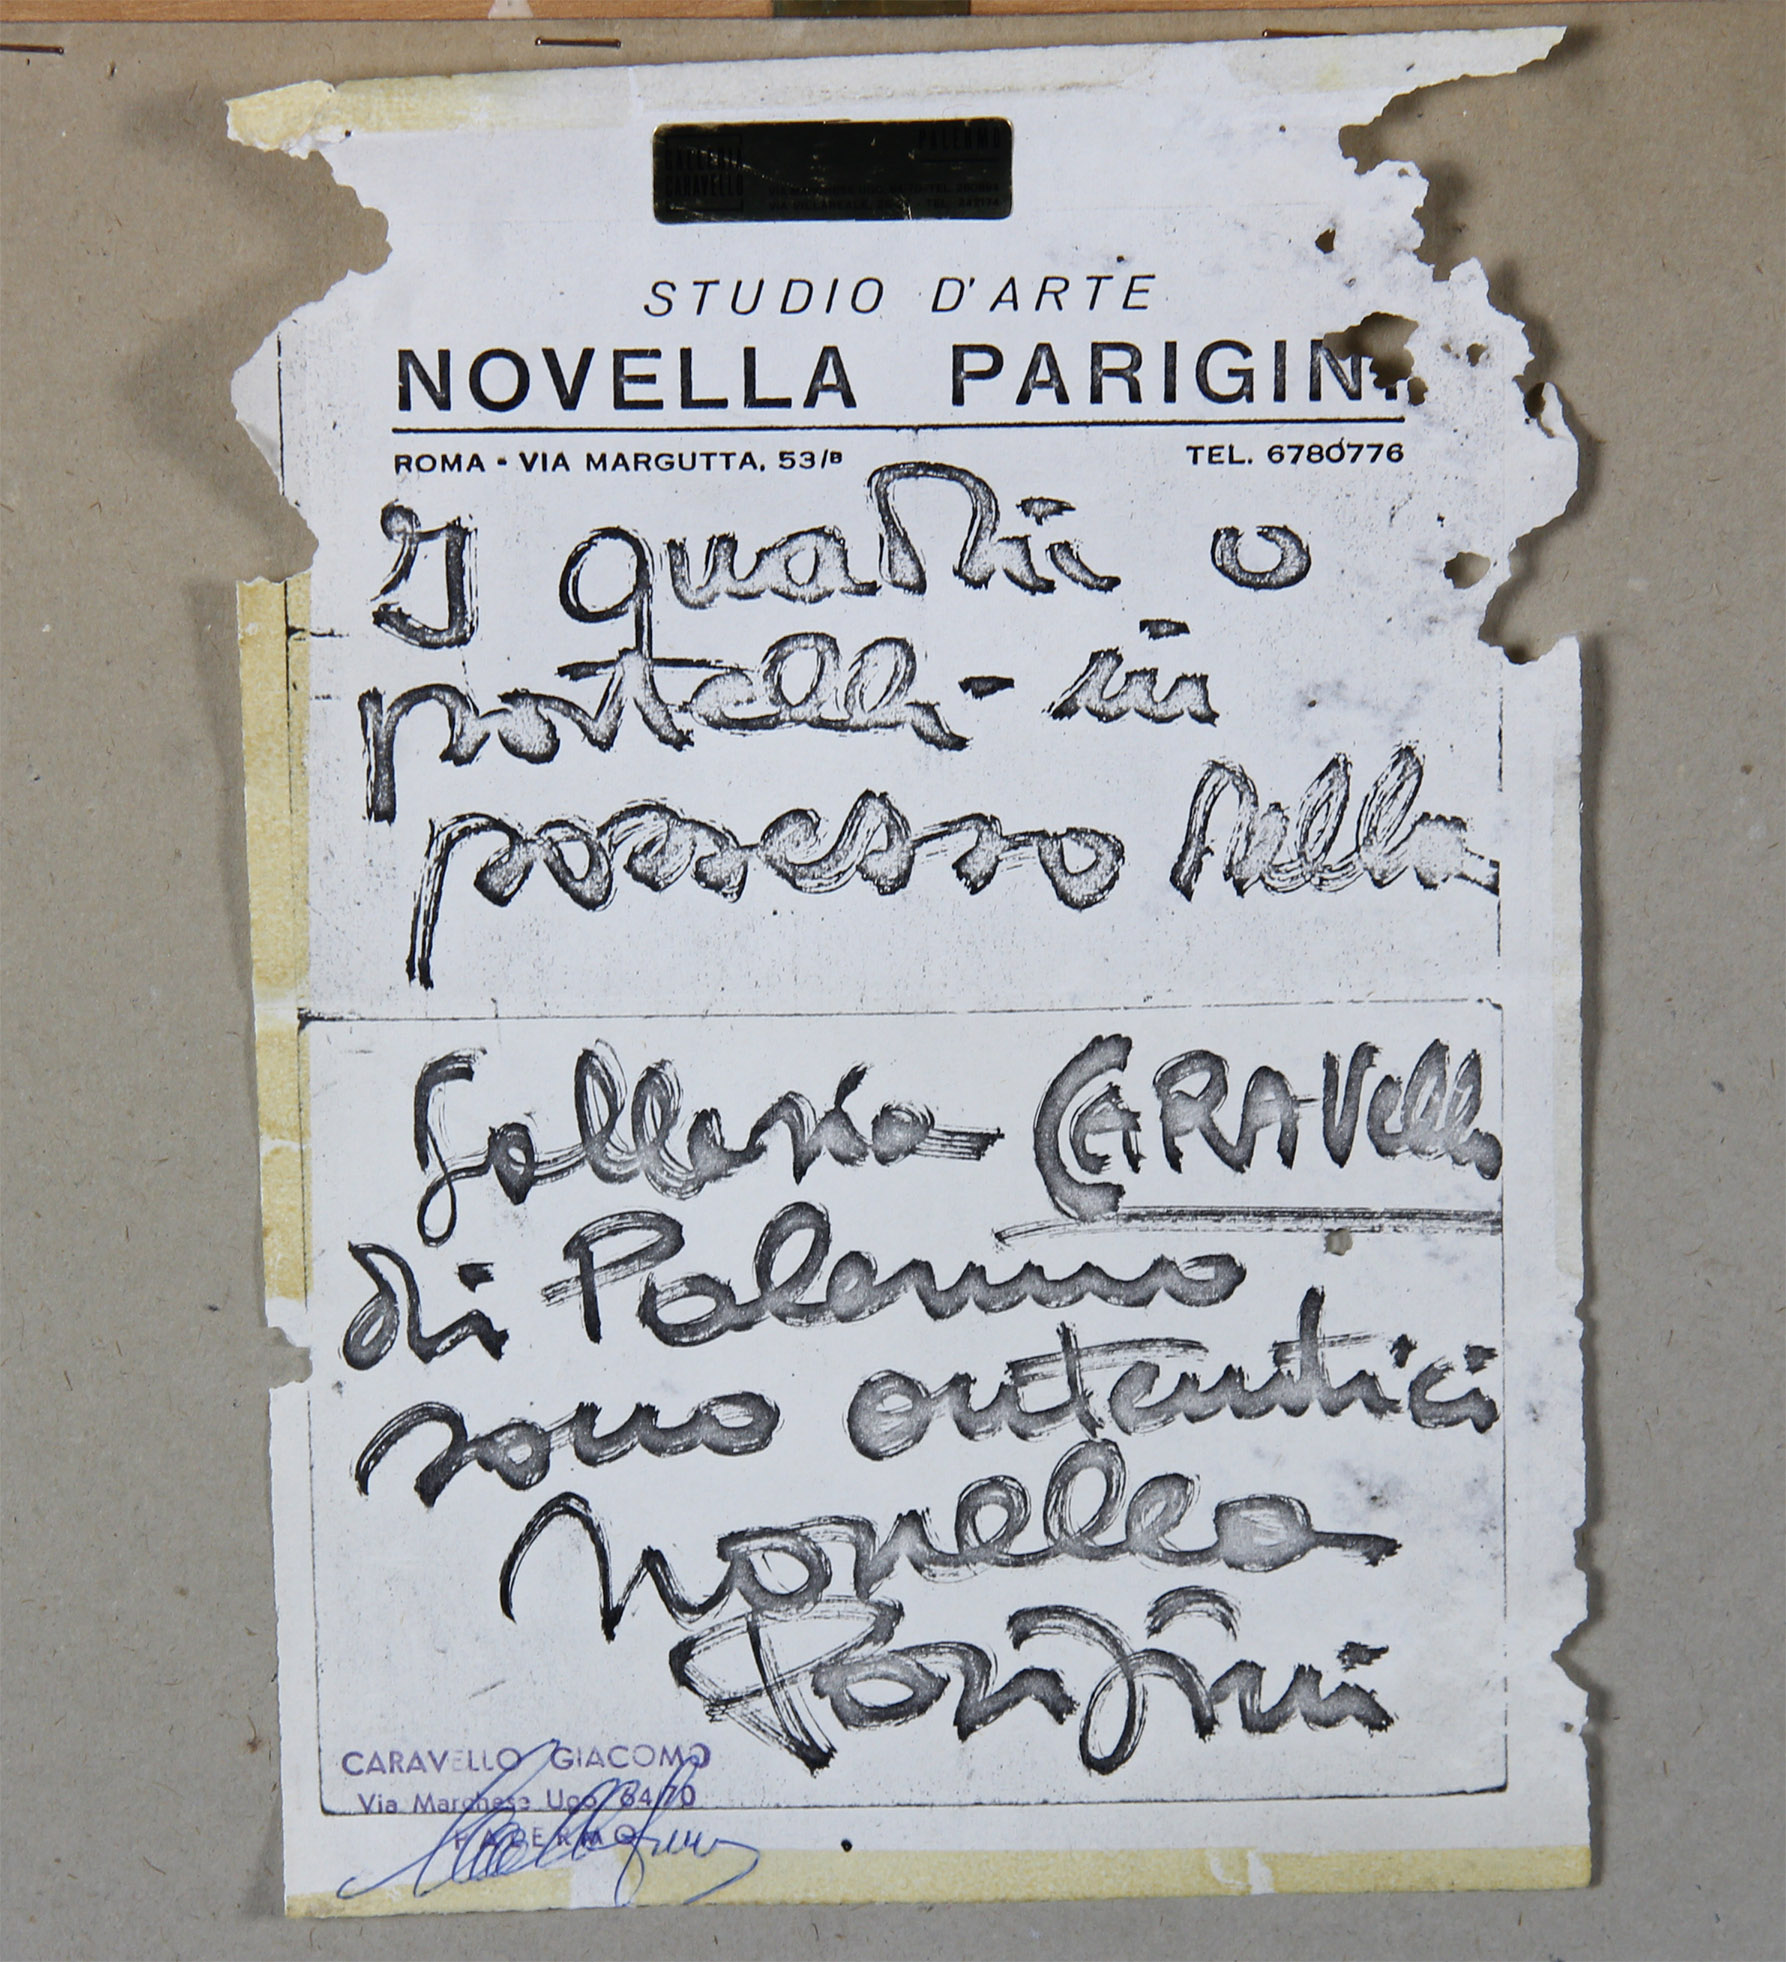 GALLERIA PALERMO
CARAVELLO
STUDIO D'ARTE
NOVELLA PARIGINI
ROMA - VIA MARGUTTA, 53/B TEL. 6780776
I quadri o
pastelli - in
possesso della
Galleria CARAVello
di Palermo
sono autentici
Novella
Parigini
CARAVELLO GIACOMO
Via Marchese Ugo 64/70
PALERMO